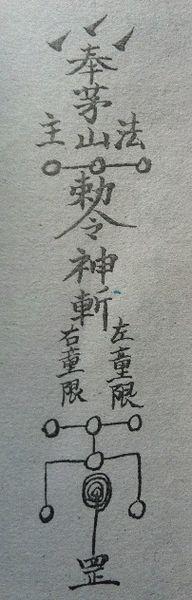 奉茅山
主法
勅令神斬
右童限
左童限
罡